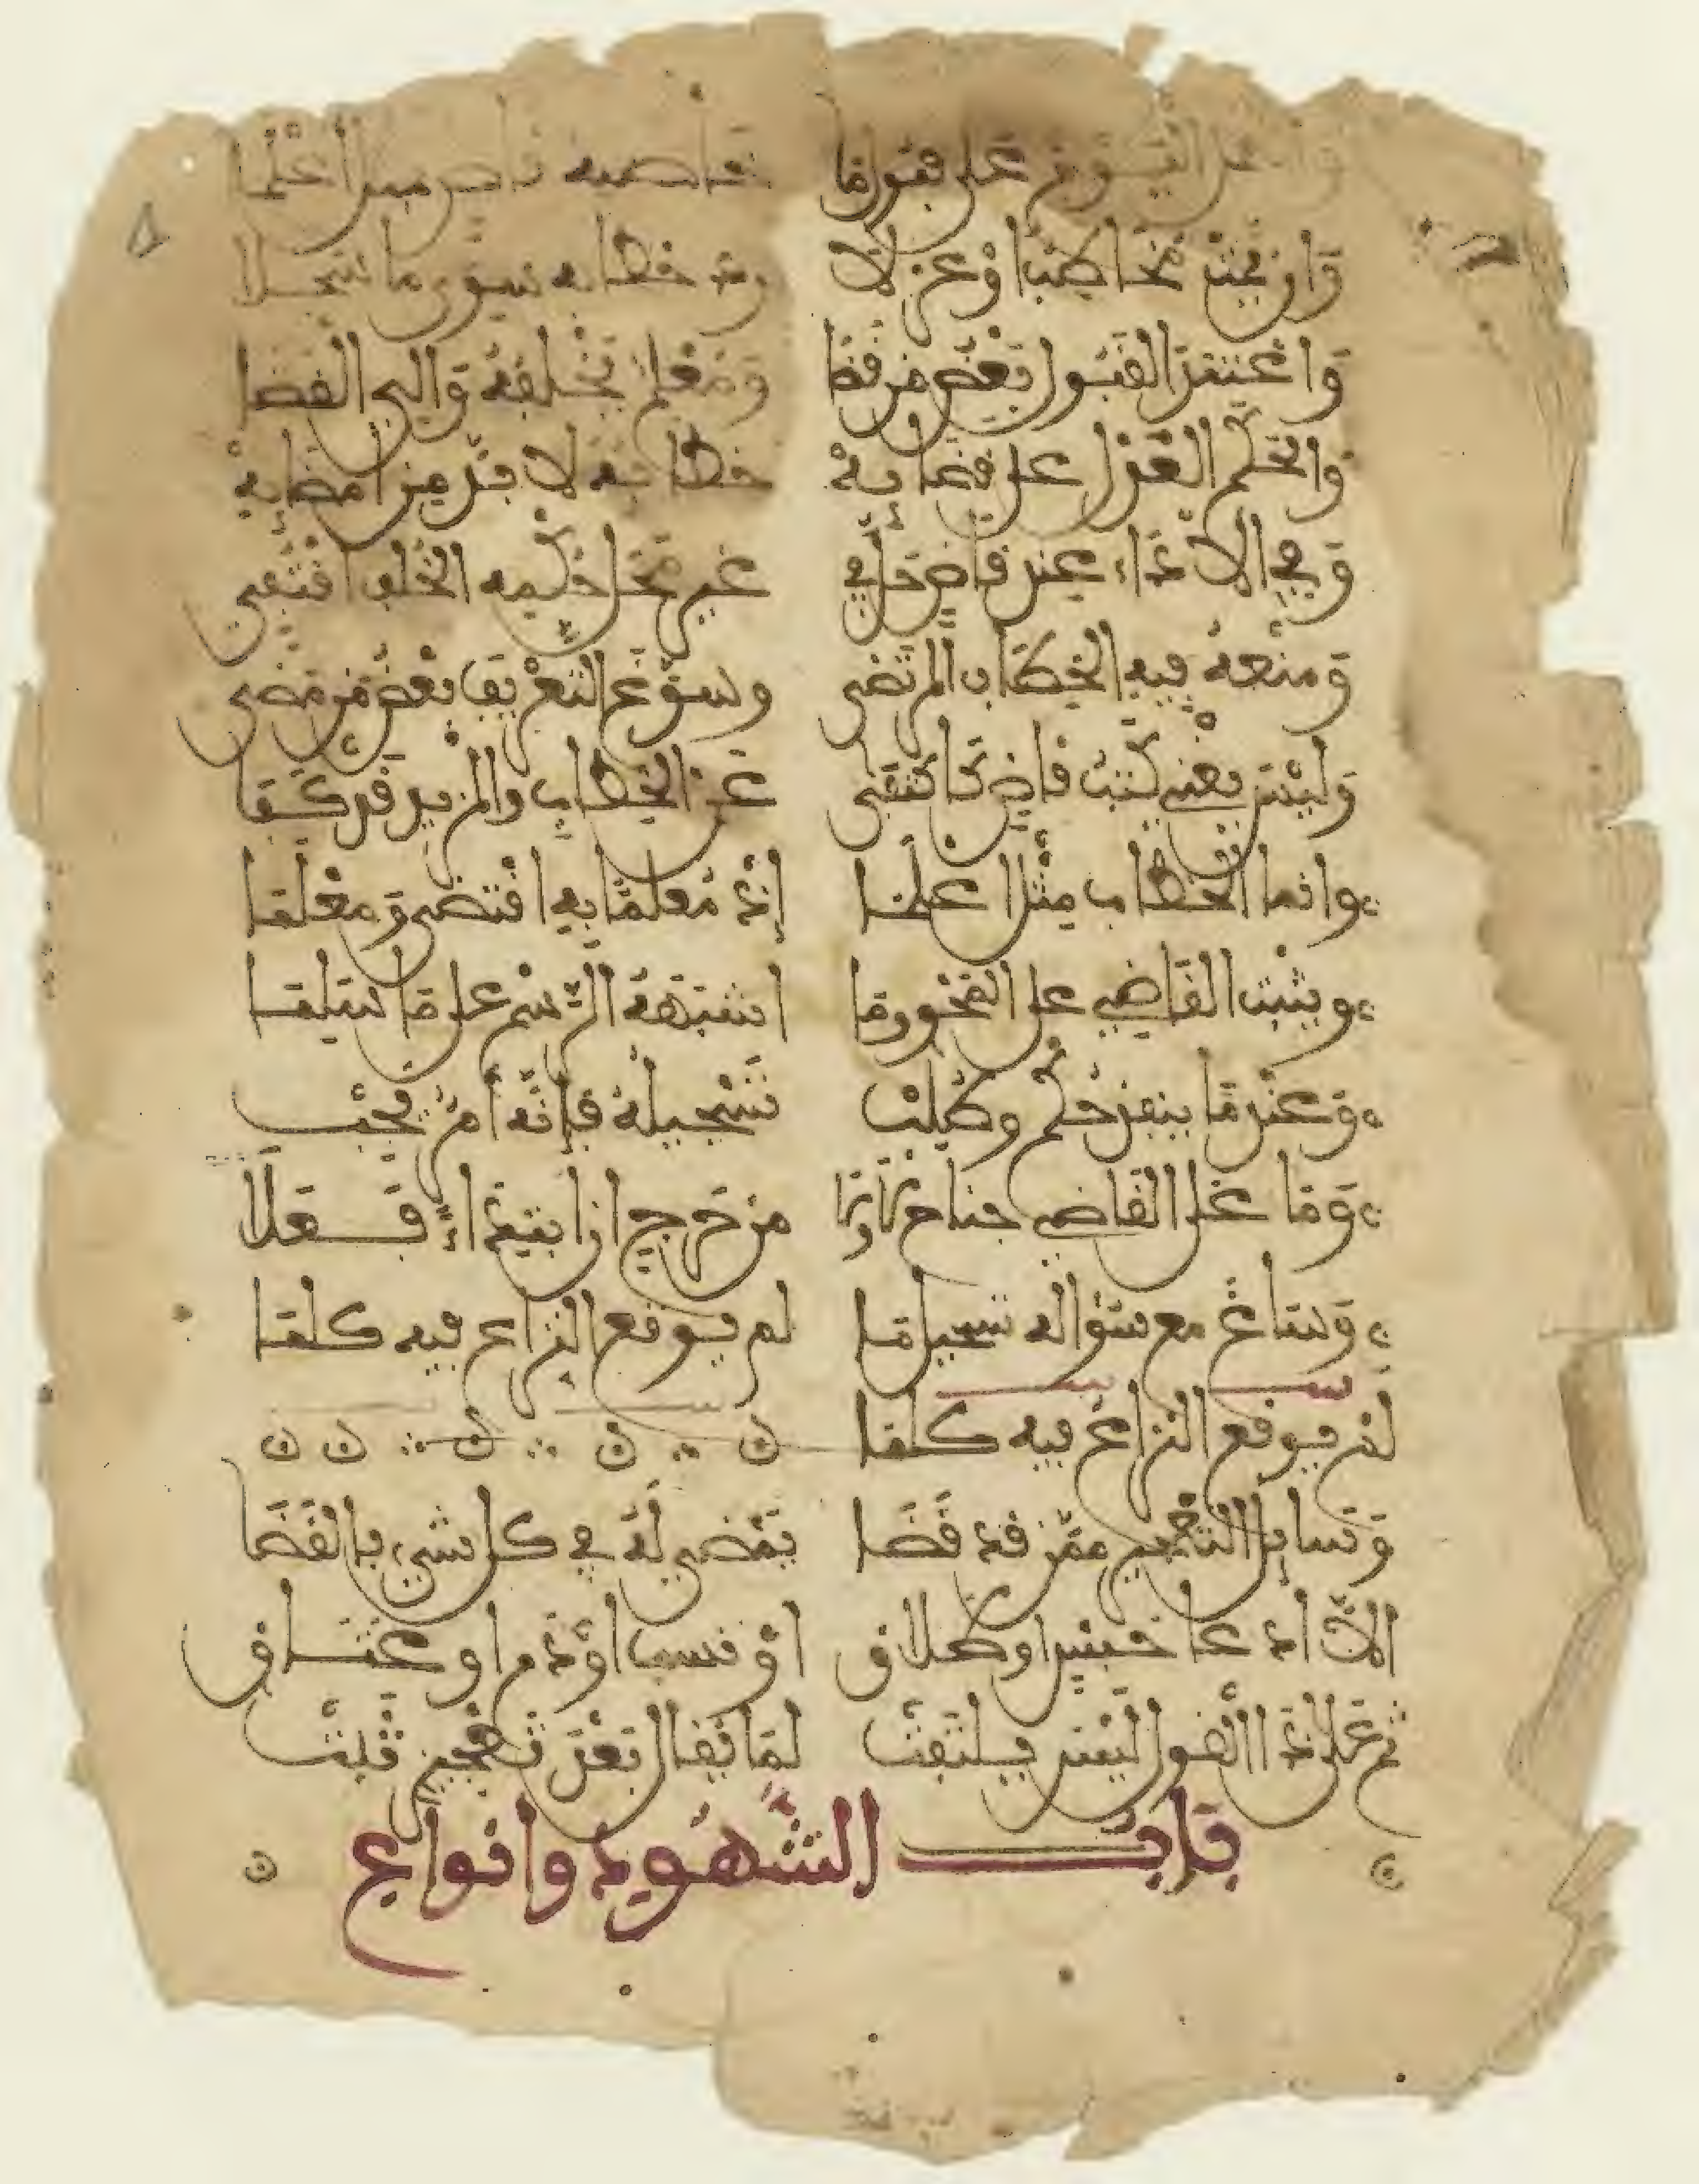 والعمل اليوم على قبول ما خاطبه قاض بمثل أعلما
وان يمت مخاطب او عزلا رد خطابه سوى ما سجلا
واعتمد القبول بعض من قضا ومعلم يخلفه والي القضا
والحكم العدل على قضايه خطابه لا بد من امضايه
وفي الاداء عند قاض حل في غير محل حكمه الخلف اقتفي
ومنعه فيه الخطاب المرتضى وسوغ التعريف بعض من مضى
وليس يغني كتب قاض كاكتفى عن الخطاب والمزيد قد كفا
وانما الخطاب مثل اعلما إذ معلما به اقتضى ومعلما
ويثبت القاضي على المحو وما اشبهه الرسم على ما سلما
وعند ما ينفذ حكم وطلب تسجيله فإنه أمر يجب
وما على القاضي جناح لا ولا من حرج ان ابتداء فعلا
وساغ مع سؤاله تسجيل ما لم يوقع النزاع فيه كلما
لم يوقع النزاع فيه كلما ن ن ن ن ن
وسايل التعجيز ممن قد قضا يمضى له في كل شيء بالقضا
الا ادعا حبس او طلاق او نسب او دم او عتاق
ثم على ذا القول ليس يلتفت لما يقال بعد تعجيز ثبت
باب الشهود وانواع